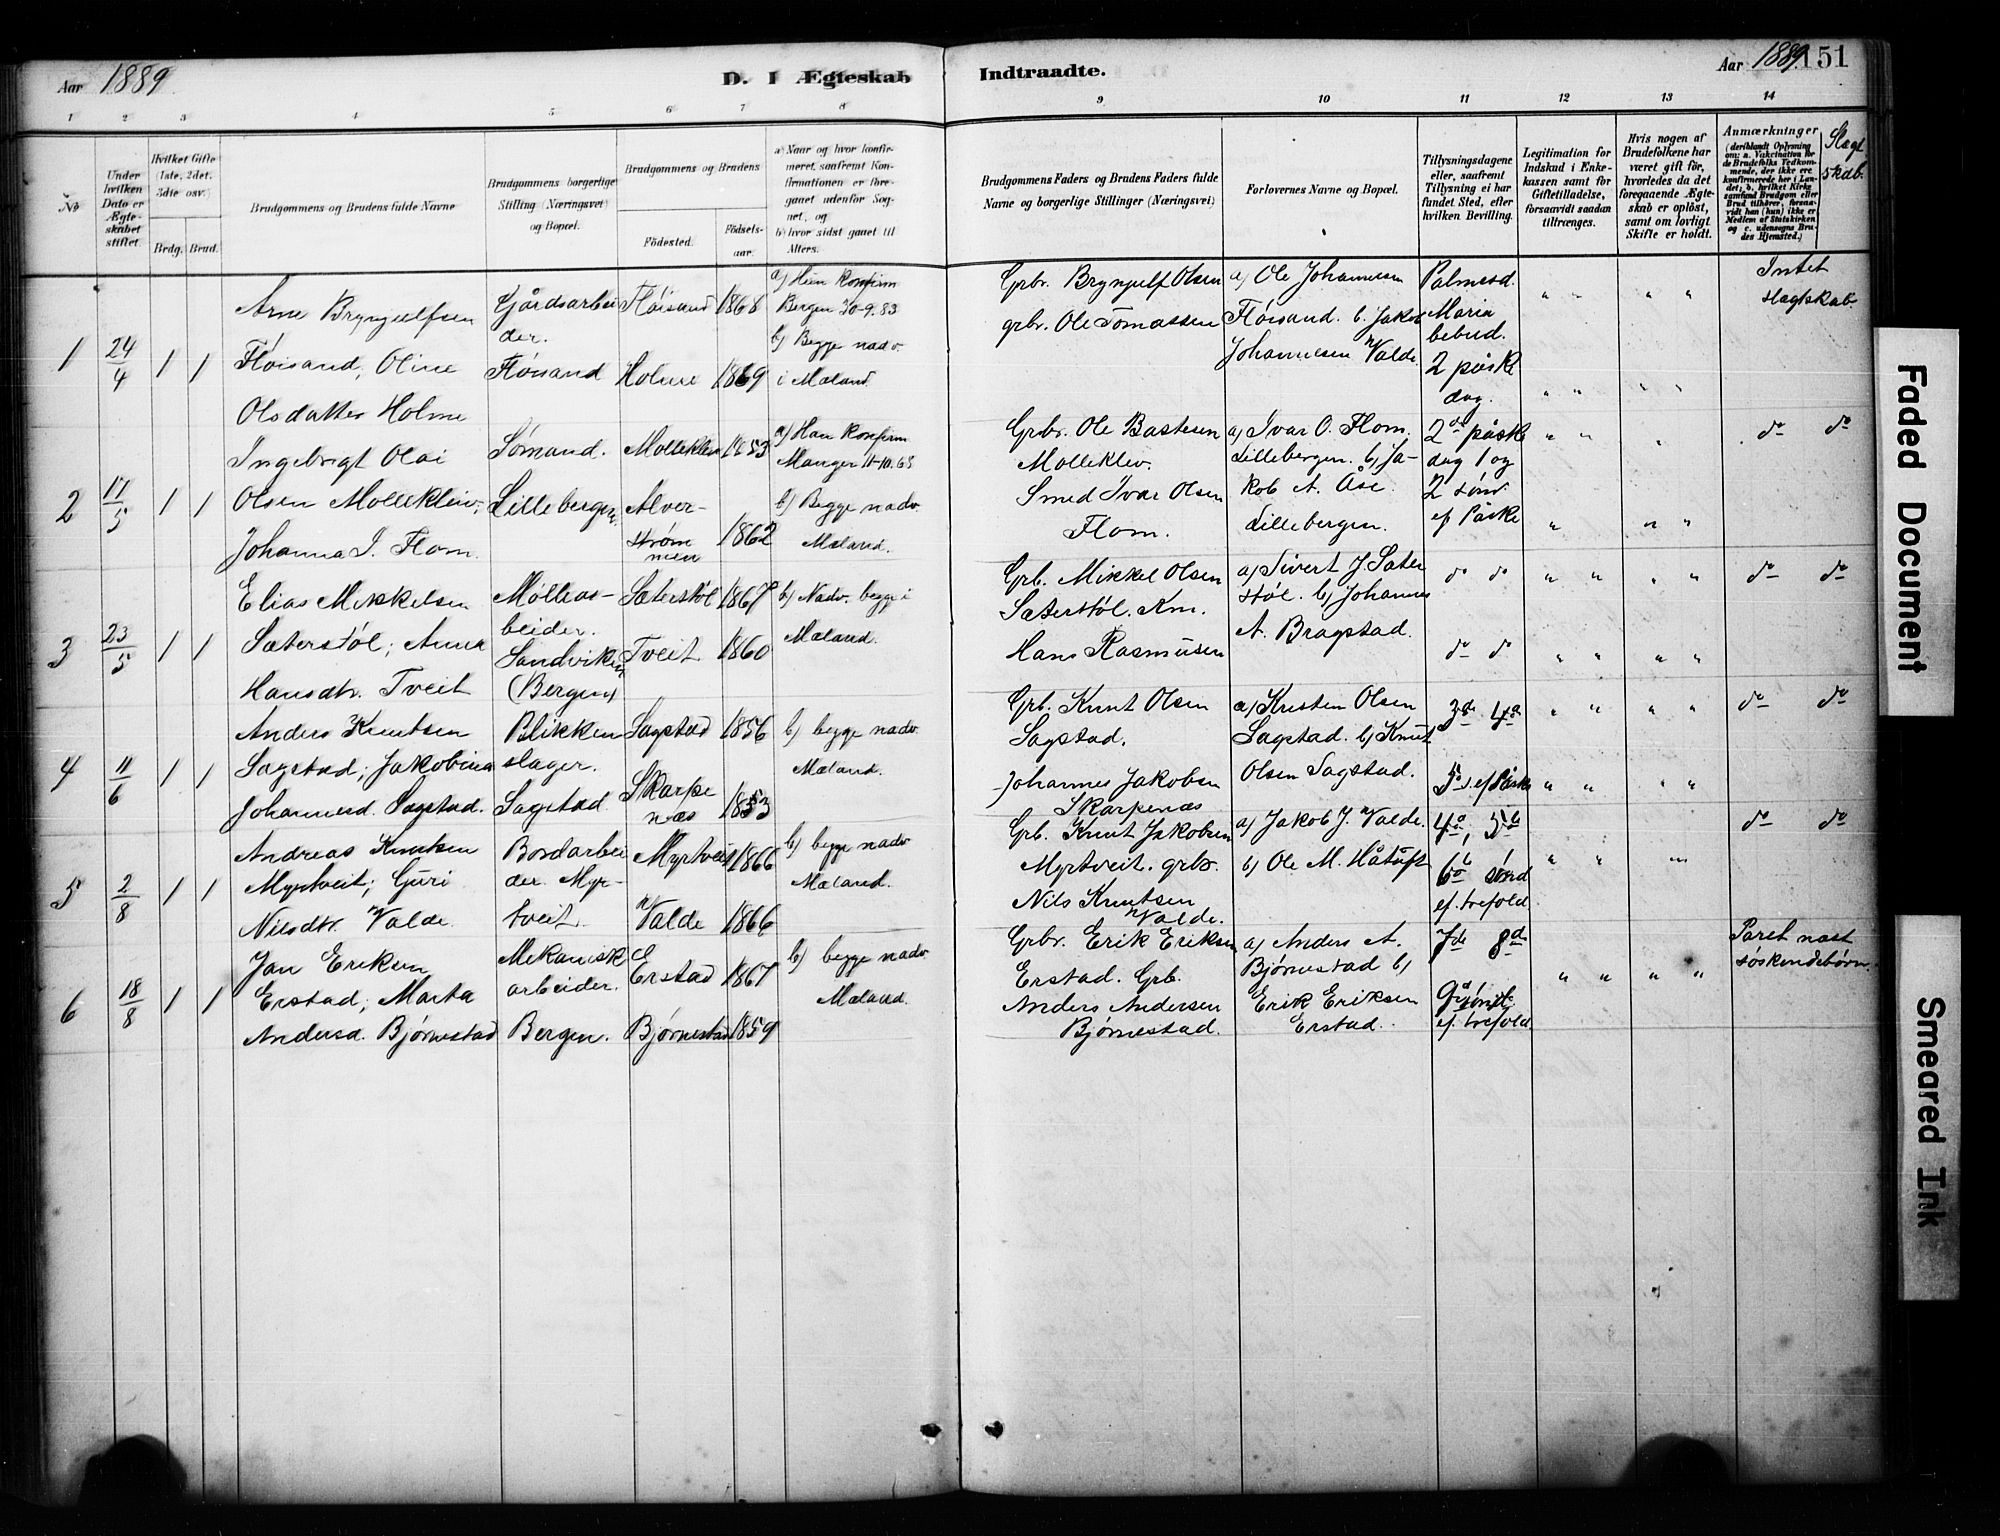 Aar 1889
D. I Ægteskab
Indtraadte.
Aar 1889
151
1 2 3 4 5 6 7 8
9 10 11 12 13 14
No
Under hvilken Dato er Ægteskabet stiftet.
Hvilket Gifte (1ste, 2det, 3die osv.)
Brdg. Brud.
Brudgommens og Brudens fulde Navne
Brudgommens borgerlige Stilling (Næringsvei) og Bopæl.
Brudgommens og Brudens
Födested.
Födselsaar.
a) Naar og hvor konfirmeret, saafremt Konfirmationen er foregaaet udenfor Sognet, og
b) hvor sidst gaaet til Alters.
Brudgommens Faders og Brudens Faders fulde Navne og borgerlige Stillinger (Næringsvei)
Forlovernes Navne og Bopæl.
Tillysningsdagene eller, saafremt Tillysning ei har fundet Sted, efter hvilken Bevilling.
Legitimation for Indskud i Enkekassen samt for Giftetilladelse, forsaavidt saadan tiltrænges.
Hvis nogen af Brudefolkene har været gift før, hvorledes da det foregaaende Ægteskab er oplöst, samt om lovligt Skifte er holdt.
Anmærkninger (deriblandt Oplysning om: a. Vakcination for de Brudefolks Vedkommende, der ikke ere konfirmerede her i Landet; b. hvilket Kirkesamfund Brudgom eller Brud tilhører, forsaavidt han (hun) ikke er Medlem af Statskirken og c. udensogns Brudes Hjemsted.)
Slegtskab.
1
24/4
1 1
Arne Bryngulfsen
Fløisand; Oline
Olsdatter Holme
Gjårdsarbeider.
Fløisand
Fløisand 1868
Holme 1869
a) Hun konfirm
Bergen 30-9.83
b) Begge nadv.
i Mæland
Grbr. Bryngulf Olsen
grbr. Ole Tomassen
a) Ole Johannesen
Fløisand. b. Jakob
Johannesen n/Valde
Palmesd.
Maria
bebud.
2 påske
dag.
Intet
slegtskab
2
11/5
1 1
Ingebrigt Olai
Olsen Molleklev;
Johanna I. Flom.
Sømand.
Lillebergen
Molleklev 1853
Alver-
strøm
men 1862
a) Han konfirm
Manger 11-10.68
b) Begge nadv.
Mæland.
Grbr. Ole Bastesen
Molleklev.
Smed Ivar Olsen
Flom.
a) Ivar O. Flom.
Lillebergen. b) Ja-
kob A. Åse
Lillebergen.
2den påske
dag 1 og
2 sønd
ef Påske
do do
3
23/5
1 1
Elias Mikkelsen
Sæterstøl; Anna
Hansdtr. Tveit
Møllear-
beider.
Sandviken
(Bergen)
Sæterstøl 1867
Tveit 1860
b) Nadv. begge i
Mæland.
Grb. Mikkel Olsen
Sæterstøl. Km.
Hans Rasmusen
a) Sivert J. Sæter
støl. b) Johannes
A. Bragstad.
do do
do do
do do
4
11/6
1 1
Anders Knutsen
Sagstad; Jakobina
Johannesd. Sagstad.
Blikken
slager.
Sagstad
Sagstad 1856
Skarpe
næs 1853
b) begge nadv.
Mæland.
Grb. Knut Olsen
Sagstad.
Johannes Jakobsen
Skarpenæs
a) Kristen Olsen
Sagstad. b) Knut
Olsen Sagstad.
3de 4de
5te s. ef Påske
do do
5
2/8
1 1
Andreas Knutsen
Myrtveit; Guri
Nilsdtr. n/Valde
Bordarbei
der. Myr-
tveit.
Myrtveit 1866
n/Valde 1866
b) begge nadv
Mæland.
Grb. Knut Jakobsen
Myrtveit. grbr.
Nils Knutsen
n/Valde.
a) Jakob J. n/Valde.
b) Ole M. Håtuft
4de, 5te
6te sønd
ef. trefold
do do
6
18/8
1 1
Jan Eriksen
Erstad; Marta
Andersd. Bjørnestad
Mekanisk
arbeider.
Bergen.
Erstad 1867
Bjørnestad 1859
b) begge nadv.
Mæland.
Grbr. Erik Eriksen
Erstad. Grb.
Anders Andersen
Bjørnestad.
a) Anders A.
Bjørnestad b)
Erik Eriksen
Erstad.
7de 8de
9de sønd.
ef. trefold.
Paret næst
søskendebørn.
Faded Document
Smeared Ink